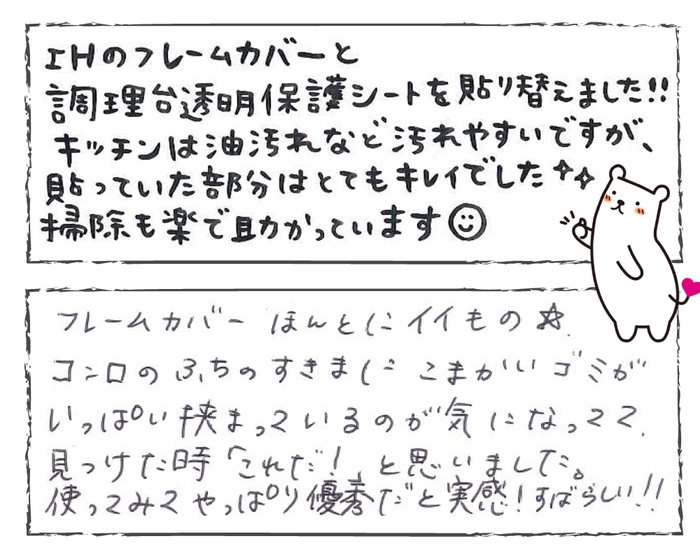 IHのフレームカバーと
調理台透明保護シートを貼り替えました!!
キッチンは油汚れなど汚れやすいですが、
貼っていた部分はとてもキレイでした✧✧
掃除も楽で助かっています☺
フレームカバー ほんとにイイもの☆.
コンロのふちのすきまに こまかいゴミが
いっぱい挟まっているのが気になってて.
見つけた時「これだ!」と思いました。
使ってみてやっぱり優秀だと実感!すばらしい!!